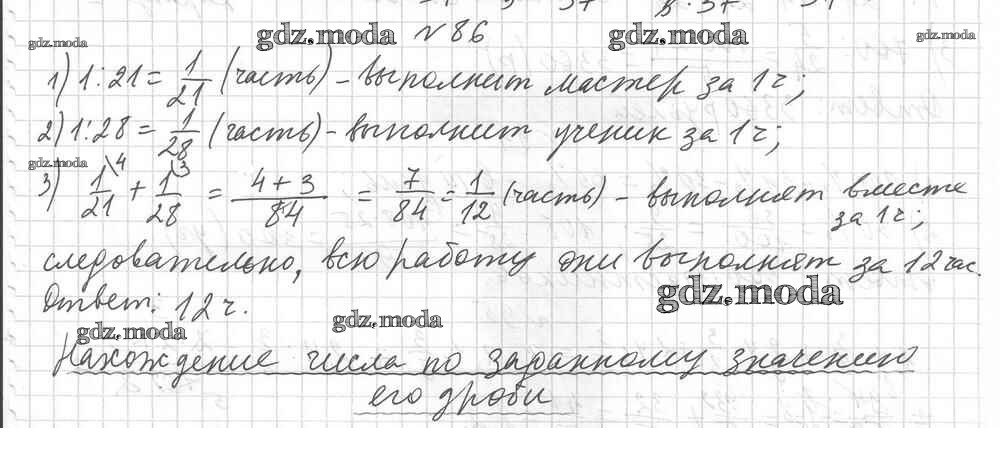 gdz.moda gdz.moda №86 gdz.moda
1) 1:21 = 1/21 (часть) – выполнит мастер за 1ч;
2) 1:28 = 1/28 (часть) – выполнит ученик за 1ч;
gdz.moda
3) 1\4/21 + 1\3/28 = 4+3/84 = 7/84 = 1/12 (часть) – выполнят вместе
за 1ч;
следовательно, всю работу они выполнят за 12 час.
Ответ: 12ч.
gdz.moda
gdz.moda gdz.moda
Нахождение числа по заданному значению
его дроби